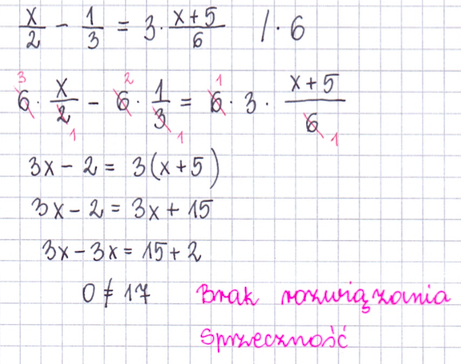 x/2 - 1/3 = 3 · (x+5)/6 / · 6
6 · x/2 - 6 · 1/3 = 6 · 3 · (x+5)/6
3 1 2 1 1 1
3x - 2 = 3(x+5)
3x - 2 = 3x + 15
3x - 3x = 15 + 2
0 ≠ 17 Brak rozwiązania
Sprzeczność